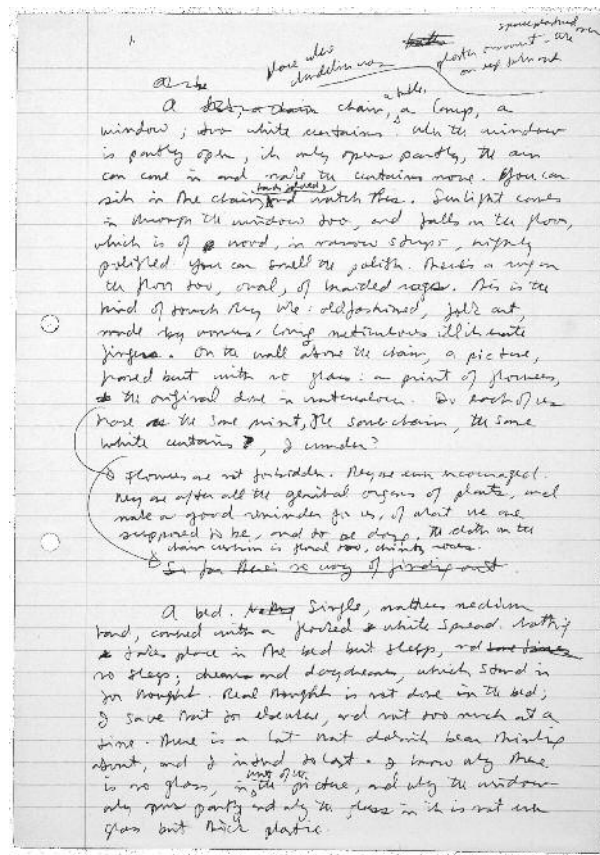 1.
place also
plaster ornament - like
on
A chair, a table, a lamp, a
window, two white curtains. When the window
is partly open, it only opens partly, the air
can come in and make the curtains move. You can
sit in the chair, and watch this. Sunlight comes
in through the window too, and falls on the floor,
which is of wood, in narrow strips, highly
polished. You can smell the polish. There's a rug on
the floor too, oval, of braided rags. This is the
kind of touch they like: oldfashioned, folk art,
made by women. loving meticulous illiterate
fingers. On the wall above the chair, a picture,
framed but with no glass: a print of flowers,
the original done in watercolour. Do each of us
have the same print, the same chair, the same
white curtains, I wonder?
Flowers are not forbidden. They are even encouraged.
They are after all the genital organs of plants, and
make a good reminder for us, of what we are
supposed to be, and to be doing. The cloth on the
chair cushion is floral too, chintz roses.
So far there's no way of finding out.
A bed. Single, mattress medium
hard, covered with a flocked white spread. Nothing
takes place in the bed but sleep, and
no sleep; dreams and daydreams, which stand in
for thought. Real thought is not done in the bed;
I save that for elsewhere, and not too much at a
time. There is a lot that doesn't bear thinking
about, and I intend to last. I know why there
is no glass, in front of the picture, and why the window
only opens partly and why the glass in it is not even
glass but thick plastic.